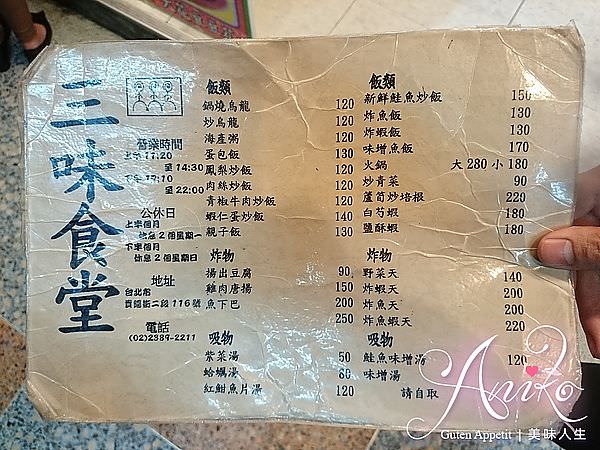 三味食堂
營業時間
上午11:20
至14:30
下午17:10
至22:00
公休日
上半個月
休息2個星期一
下半個月
休息2個星期日
地址
台北市
貴陽街二段116號
電話
(02)2389-2211
飯類
鍋燒烏龍 120
炒烏龍 120
海產粥 120
蛋包飯 130
鳳梨炒飯 120
肉絲炒飯 120
青椒牛肉炒飯 120
蝦仁蛋炒飯 140
親子飯 130
炸物
揚出豆腐 90
雞肉唐揚 150
魚下巴 200
250
吸物
紫菜湯 50
蛤蠣湯 80
紅魽魚片湯 120
飯類
新鮮鮭魚炒飯 150
炸魚飯 130
炸蝦飯 130
味增魚飯 170
火鍋 大280小180
炒青菜 90
蘆筍炒培根 220
白芍蝦 180
鹽酥蝦 180
炸物
野菜天 140
炸蝦天 200
炸魚天 200
炸魚蝦天 220
吸物
鮭魚味增湯 120
味增湯
請自取
Aniko
Guten Appetit | 美味人生